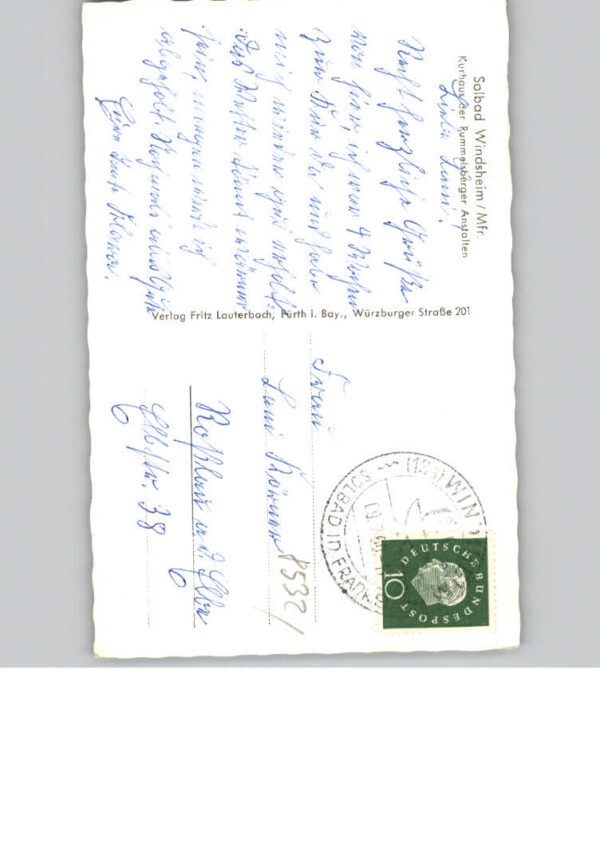 Solbad Windsheim/Mfr.
Kurhaus der Rummelsberger Anstalten
Liebe Leni!
Recht herzliche Grüße
von hier, ich war 4 Wochen
zur Kur da und habe
mich wieder gut erholt.
Das Wetter könnt wärmer
sein, morgen werd ich
abgeholt. Nochmals
Verlag Fritz Lauterbach, Fürth i. Bay., Würzburger Straße 201
Frau
Leni
Roßlau a. d. Elbe
Elbstr. 38
8532/
(13a) WIN
SOLBAD IN FRANK
DEUTSCHE BUNDESPOST
10